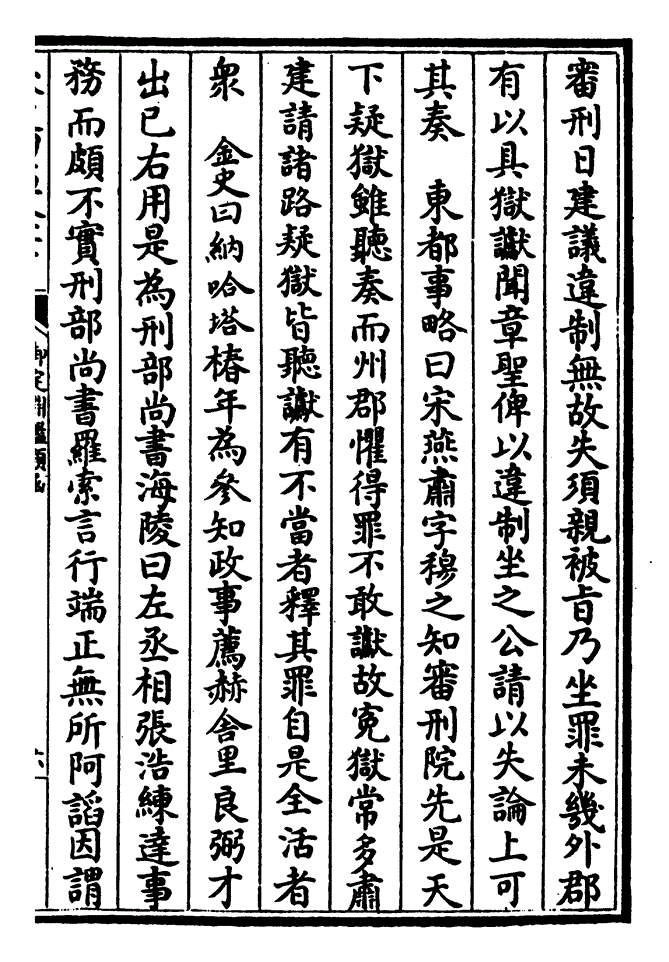 審刑日建議違制無故失須親被旨乃坐罪未幾外郡
有以具獄讞聞章聖俾以違制坐之公請以失論上可
其奏　東都事略曰宋燕肅字穆之知審刑院先是天
下疑獄雖聽奏而州郡懼得罪不敢讞故寃獄常多肅
建請諸路疑獄皆聽讞有不當者釋其罪自是全活者
衆　金史曰納哈塔椿年為參知政事薦赫舎里良弼才
出已右用是為刑部尚書海陵曰左丞相張浩練達事
務而頗不實刑部尚書羅索言行端正無所阿謟因謂
御定淵鑑類函